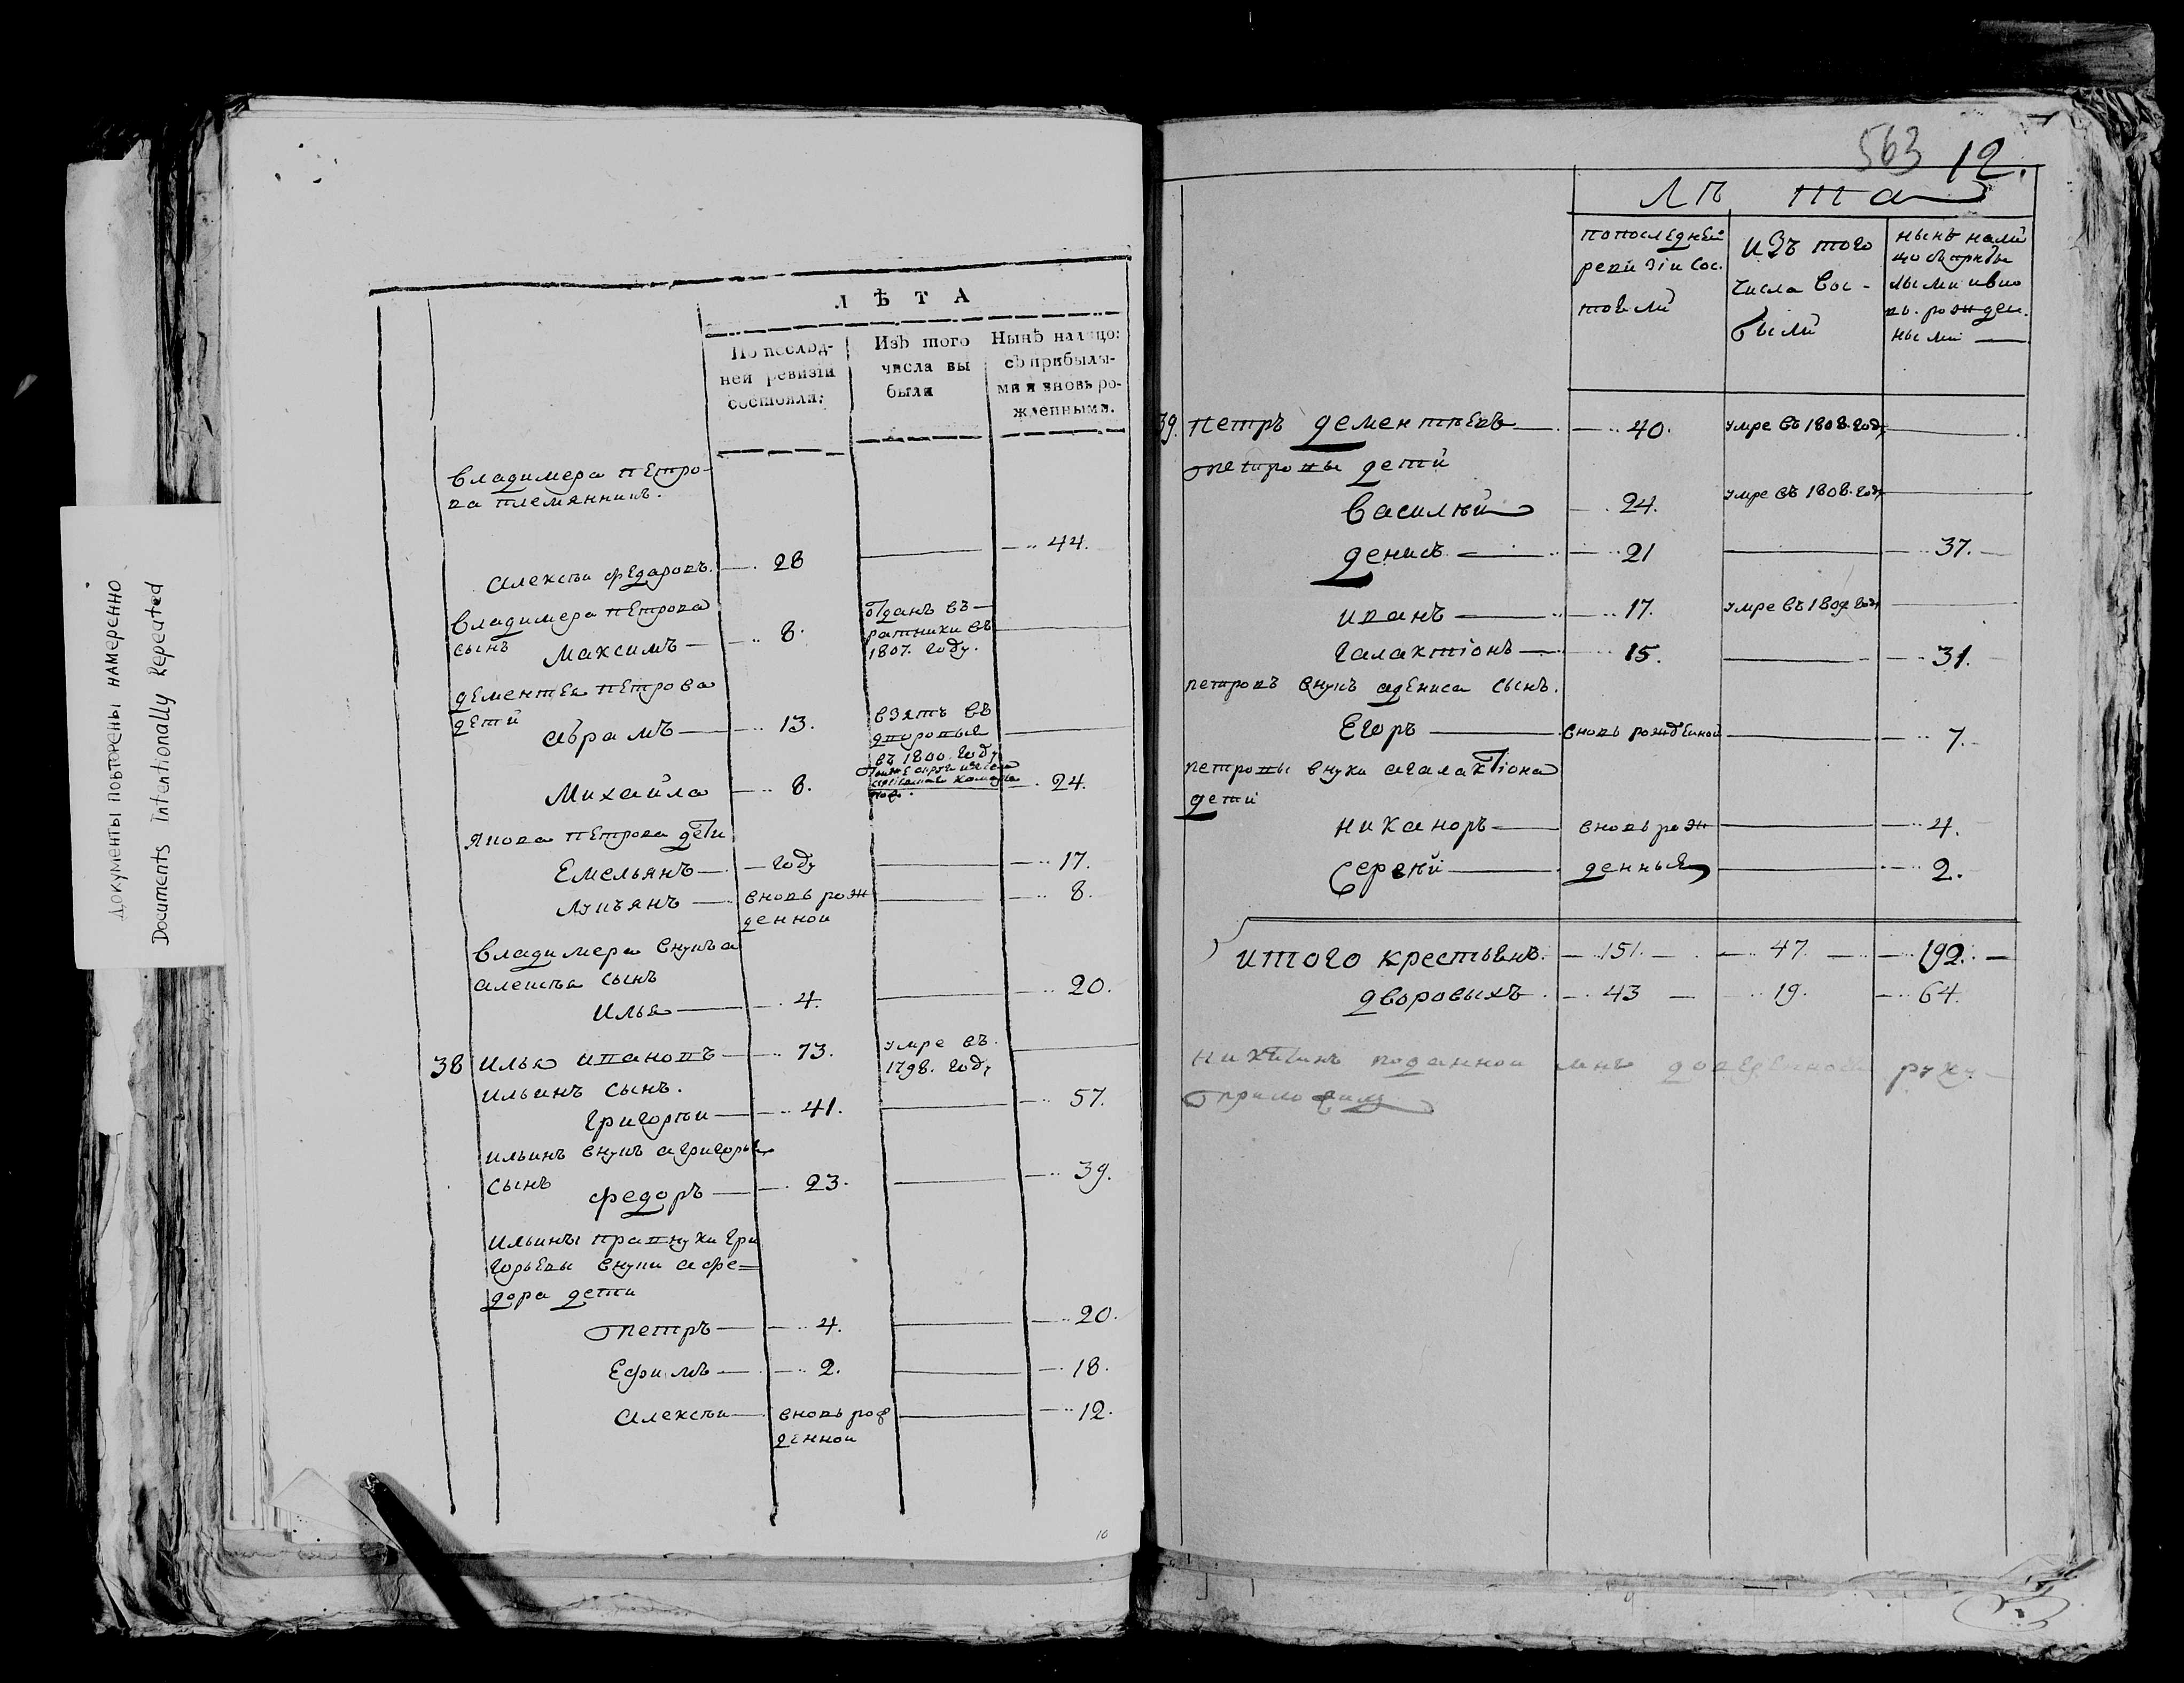 документы повторены намеренно
Documents Intentionally Repeated
ЛѢТА
По послѣд-
ней ревизіи
состояли:
Изъ того
числа вы
были
Нынѣ налицо:
съ прибылы-
ми и вновь ро-
жденными.
владимера петро-
ва племянникъ.
алексѣи федаровъ. 28 44.
владимера петрова
сынъ максимъ 8.
отданъ въ
ратники въ
1807. году.
дементея петрова
дети
абрамъ 13.
взятъ въ
дворовые
въ 1800. году
михаила 8. 24.
якова петрова дети
Емельянъ году 17.
лукъянъ вновь рож 8.
денной
владимера внукъ а
алексѣя сынъ
илья 4. 20.
38 илья ивановъ 73.
умре въ
1798. году
ильинъ сынъ.
григорѣи 41. 57.
ильинъ внукъ а григорья
сынъ федоръ 23. 39.
ильины правнуки гри
горьевы внуки а фе=
дора дети
петръ 4. 20.
Ефимъ 2. 18.
алексѣи вновь рож 12.
денной
10
563 12.
лѣта
попоследней
ревизіи сос.
товли
изъ того
числа вос-
были
нынѣ нали
цо съ прибы
лыми и вно
вь. рожден.
ными
39. петръ дементьевъ 40. умре въ 1808. году
петровы дети
василѣй 24. умре въ 1808. году
денисъ 21 37.
иванъ 17. умре въ 1809 году
галактіонъ 15. 31.
петровъ внукъ а дениса сынъ.
Егоръ вновь рожденной 7.
петровы внуки а галактіона
дети
никаноръ вновь рож 4.
Сергѣй денныя 2.
итого крестьянъ. 151. 47. 192.
дворовыхъ 43 19. 64.
никитинъ поданной мнѣ довереной руку
приложилъ